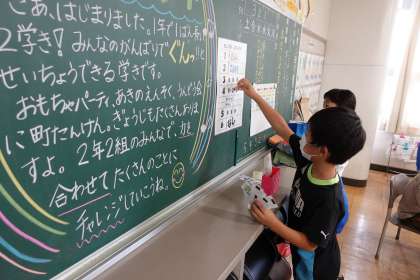 さあ、はじまりました。1年で1ばん長い
2学き！みんなのがんばりでぐんっ!!と
せいちょうできる学きです。
おもちゃパーティ、あきのえんそく、うんどう会
に町たんけん。ぎょうじもたくさんありま
すよ。2年2組のみんなで、力を
合わせてたくさんのことに
チャレンジしていこうね。